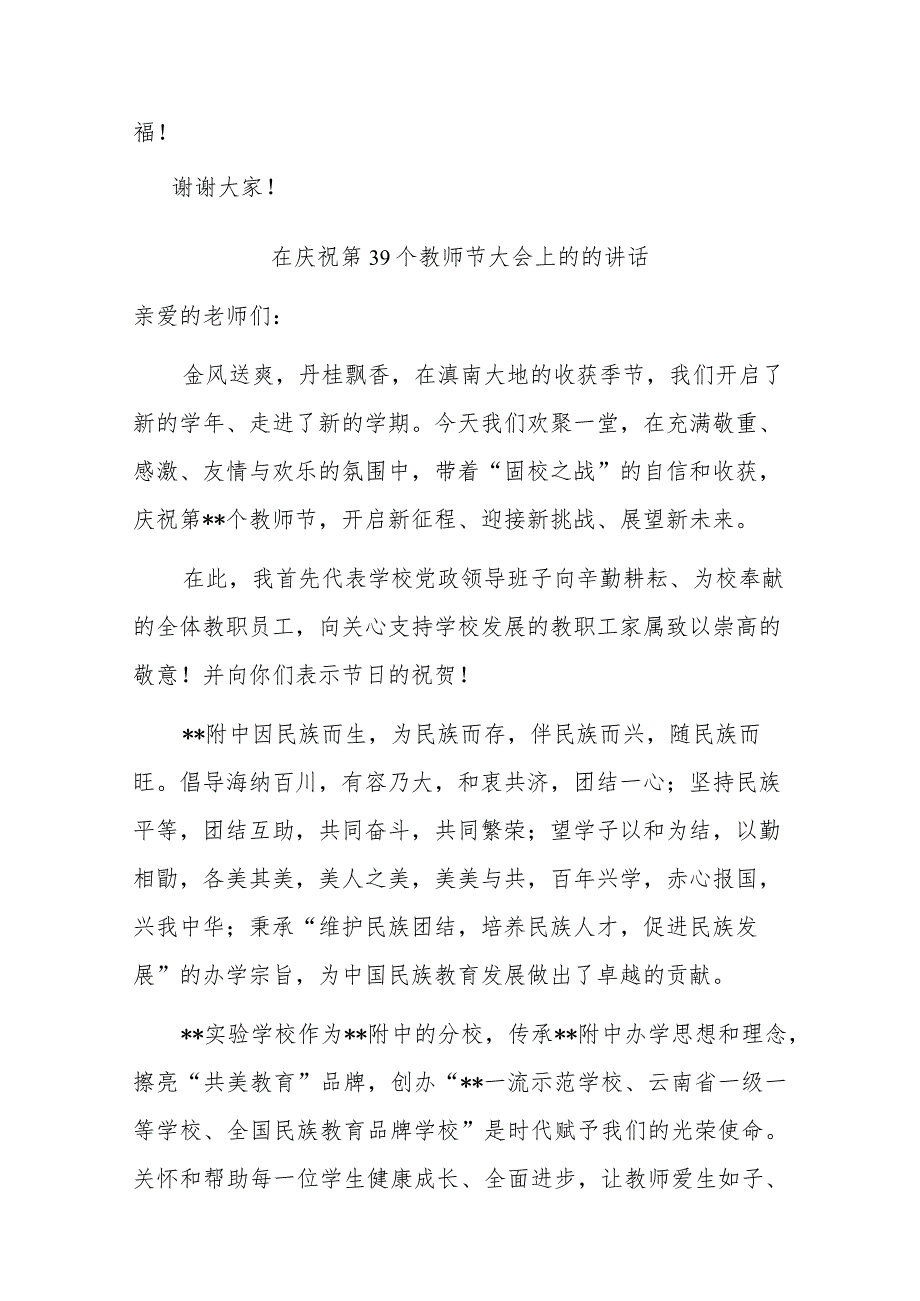 福！
谢谢大家！
在庆祝第39个教师节大会上的的讲话
亲爱的老师们：
金风送爽，丹桂飘香，在滇南大地的收获季节，我们开启了
新的学年、走进了新的学期。今天我们欢聚一堂，在充满敬重、
感激、友情与欢乐的氛围中，带着“固校之战”的自信和收获，
庆祝第**个教师节，开启新征程、迎接新挑战、展望新未来。
在此，我首先代表学校党政领导班子向辛勤耕耘、为校奉献
的全体教职员工，向关心支持学校发展的教职工家属致以崇高的
敬意！并向你们表示节日的祝贺！
**附中因民族而生，为民族而存，伴民族而兴，随民族而
旺。倡导海纳百川，有容乃大，和衷共济，团结一心；坚持民族
平等，团结互助，共同奋斗，共同繁荣；望学子以和为结，以勤
相勖，各美其美，美人之美，美美与共，百年兴学，赤心报国，
兴我中华；秉承“维护民族团结，培养民族人才，促进民族发
展”的办学宗旨，为中国民族教育发展做出了卓越的贡献。
**实验学校作为**附中的分校，传承**附中办学思想和理念，
擦亮“共美教育”品牌，创办“**一流示范学校、云南省一级一
等学校、全国民族教育品牌学校”是时代赋予我们的光荣使命。
关怀和帮助每一位学生健康成长、全面进步，让教师爱生如子、